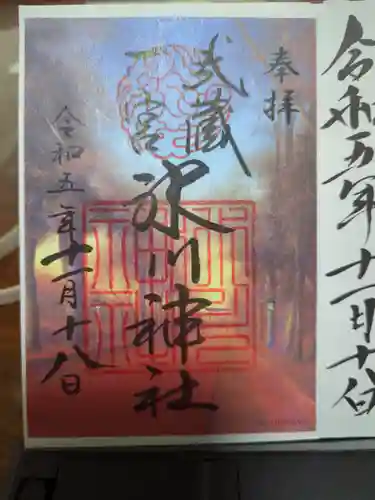 奉拝
武蔵
一宮
氷川神社
令和五年十一月十八日
令和五年十一月十八日